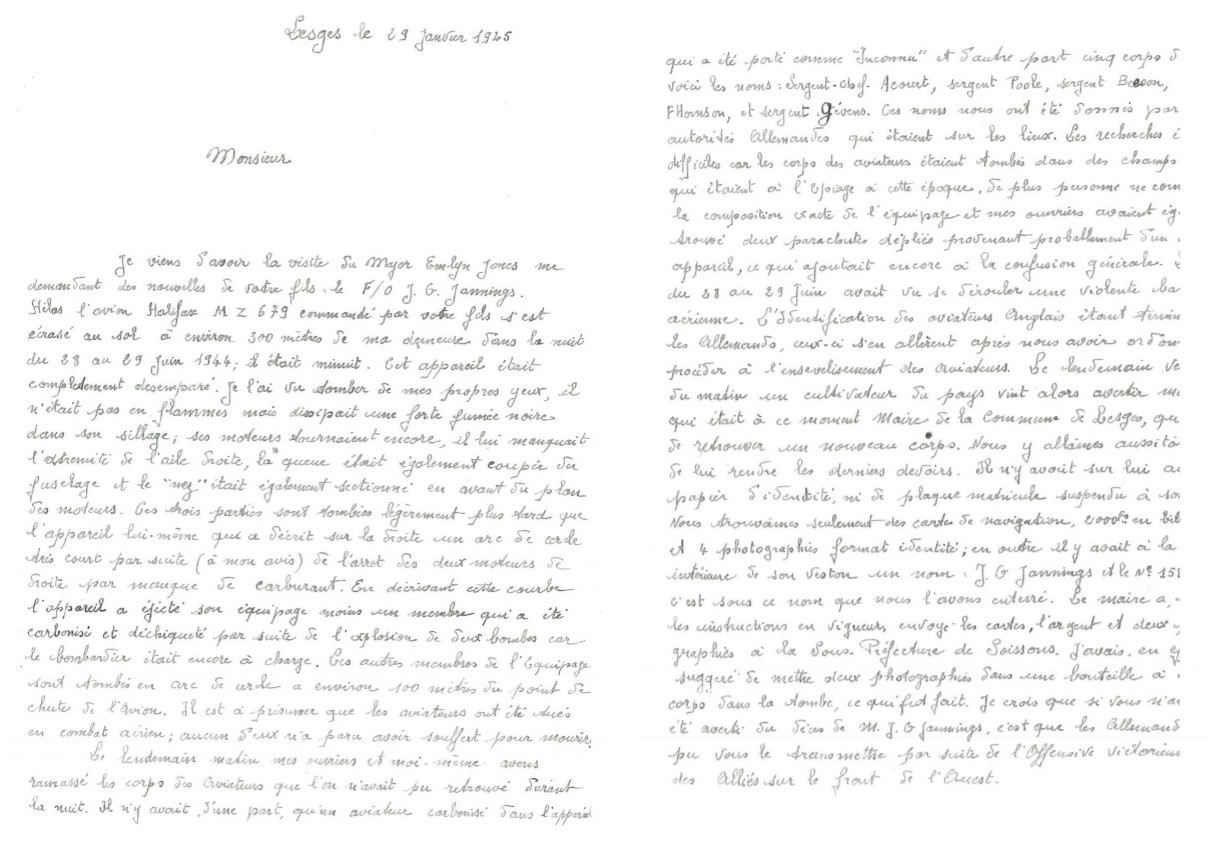 Lesges le 29 Janvier 1945
Monsieur
Je viens d'avoir la visite du Major Emlyn Jones me
demandant des nouvelles de votre fils : le F/O J. G. Jannings.
Hélas l'avion Halifax M Z 679 commandé par votre fils s'est
écrasé au sol à environ 300 mètres de ma demeure dans la nuit
du 28 au 29 Juin 1944 ; il était minuit. Cet appareil était
complètement desemparé. Je l'ai vu tomber de mes propres yeux, il
n'était pas en flammes mais dissipait une forte fumée noire
dans son sillage ; ses moteurs tournaient encore, il lui manquait
l'extremité de l'aile droite, la queue était également coupée du
fuselage et le "nez" était également sectionné en avant du plan
des moteurs. Ces trois parties sont tombées légèrement plus tard que
l'appareil lui-même qui a décrit sur la droite un arc de cercle
très court par suite (à mon avis) de l'arret des deux moteurs de
droite par manque de carburant. En décrivant cette courbe
l'appareil a éjecté son équipage moins un membre qui a été
carbonisé et déchiqueté par suite de l'explosion de deux bombes car
le bombardier était encore à charge. Les autres membres de l'Equipage
sont tombés en arc de cercle a environ 100 mètres du point de
chute de l'Avion. Il est à présumer que les aviateurs ont été tués
en combat aérien ; aucun d'eux n'a paru avoir souffert pour mourir.
Le lendemain matin mes ouvriers et moi-même avons
ramassé les corps des Aviateurs que l'on n'avait pu retrouvé durant
la nuit. Il n'y avait, d'une part, qu'un aviateur carbonisé dans l'appareil
qui a été porté comme "Inconnu" et d'autre part cinq corps d
voici les noms : Sergent-chef Acourt, sergent Poole, sergent
et sergent Gévens. Ces noms nous ont été donnés par
autorités Allemandes qui étaient sur les lieux. Les recherches é
difficiles car les corps des aviateurs étaient tombés dans des champs
qui étaient à l'Epiage à cette époque, de plus personne ne conn
la composition exacte de l'équipage et mes ouvriers avaient ég.
trouvé deux parachutes dépliés provenant probablement d'un
appareil, ce qui ajoutait encore à la confusion générale.
du 28 au 29 Juin avait vu se dérouler une violente ba
aérienne. L'Identification des aviateurs Anglais étant termin
les Allemands, ceux-ci s'en allèrent après nous avoir ordon
procéder à l'ensevelisement des aviateurs. Le lendemain ve
du matin un cultivateur du pays vint alors avertir
qui était à ce moment Maire de la Commune de Lesges, qu
de retrouver un nouveau corps. Nous y allâmes aussitô
de lui rendre les derniers devoirs. Il n'y avait sur lui au
papier d'identité, ni de plaque matricule suspendu à so
Nous trouvâmes seulement des cartes de navigation, 2000 Frs en bil
et 4 photographies format identité ; en outre il y avait à la
intérieure de son veston un nom : J. G Jannings et le N° 151
c'est sous ce nom que nous l'avons enterré. Le maire a,
les instructions en vigueur, envoyé les cartes, l'argent et deux
graphiés à la Sous-Préfecture de Soissons. J'avais, en
suggéré de mettre deux photographies dans une bouteille à
corps dans la tombe, ce qui fut fait. Je crois que si vous n'av
été averti du décès de M. J. G Jannings, c'est que les Allemand
pu vous le transmettre par suite de l'Offensive victorieus
des Alliés sur le front de l'Ouest.